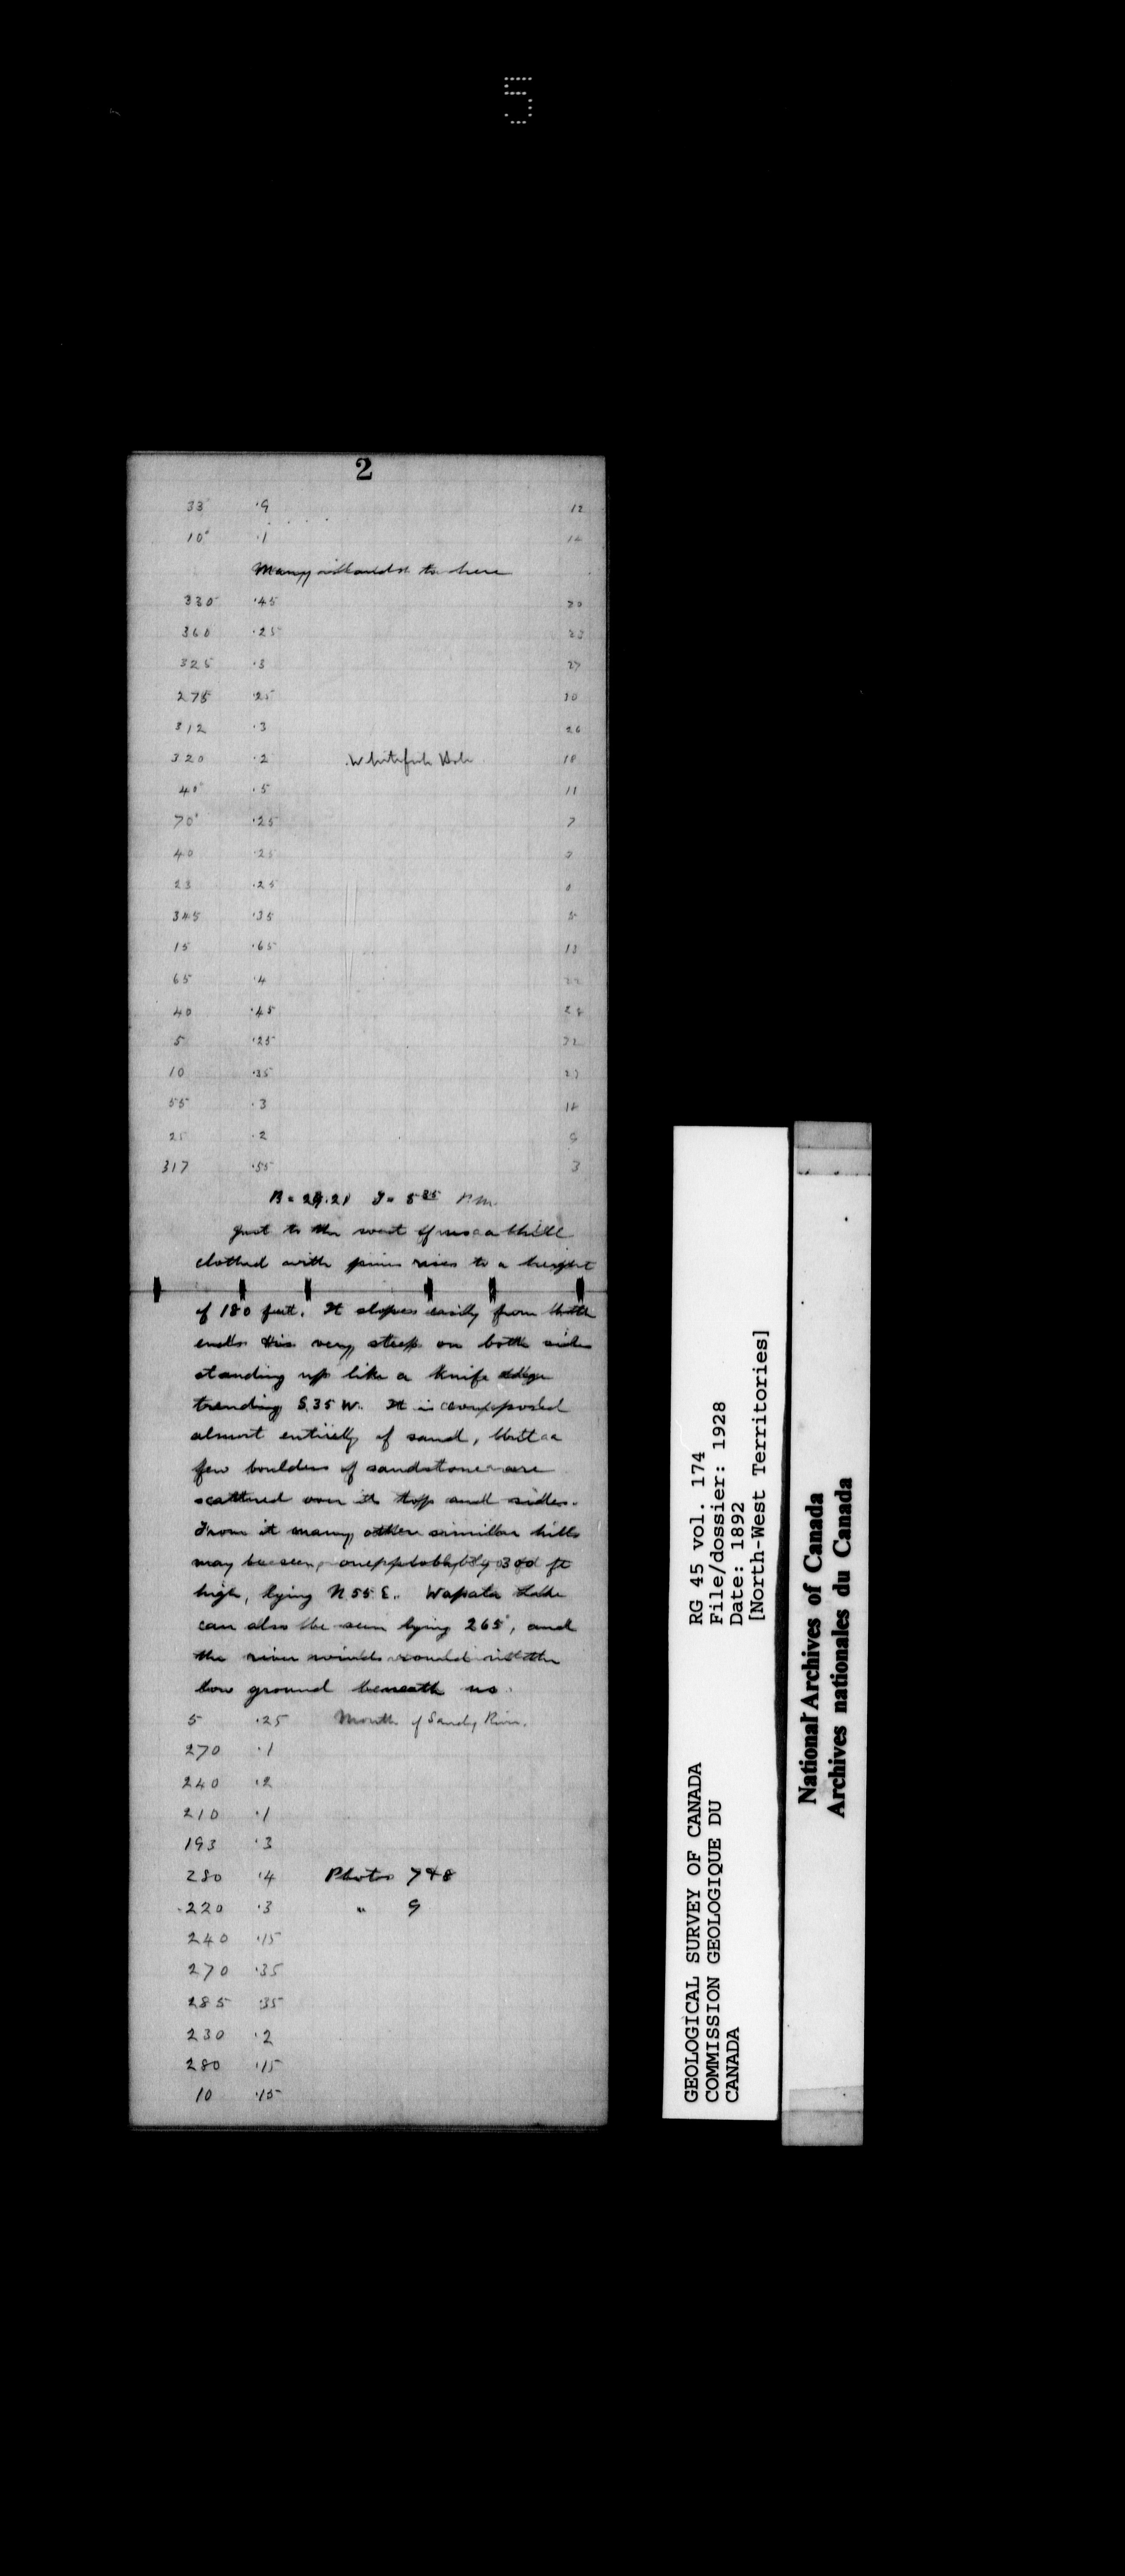 5
2
33 .9 12
10° .1
Many islands to here
330 .45 20
360 .25 23
325 .3 27
275 .25 30
312 .3 26
320 .2 Whitefish 18
40° .5 11
70° .25 7
40 .25
23 .25
345 .35 5
15 .65 13
65 .4 22
40 .45 28
5 .25
10 .35
55 .3
25 .2 9
317 .55 3
B = 29.21 T = 5 35 P.M.
Just to the west of us a hill
clothed with pines rises to a height
of 180 feet. It slopes easily from both
ends is very steep on both sides
standing up like a knife edge
trending S.35 W. It is composed
almost entirely of sand, but a
few boulders of sandstone are
scattered over its top and sides.
From it many other similar hills
may be seen, one probably 300 ft
high, lying N 55 E. Wapata Lake
can also be seen lying 265°, and
the river winds round in the
low ground beneath us.
5 .25 Mouth of Sandy River.
270 .1
240 .2
210 .1
193 .3
280 .4 Photos 7 & 8
220 .3 " 9
240 .15
270 .35
285 .35
230 .2
280 .15
10 .15
GEOLOGICAL SURVEY OF CANADA RG 45 vol. 174
COMMISSION GEOLOGIQUE DU File/dossier: 1928
CANADA Date: 1892
[North-West Territories]
National Archives of Canada
Archives nationales du Canada